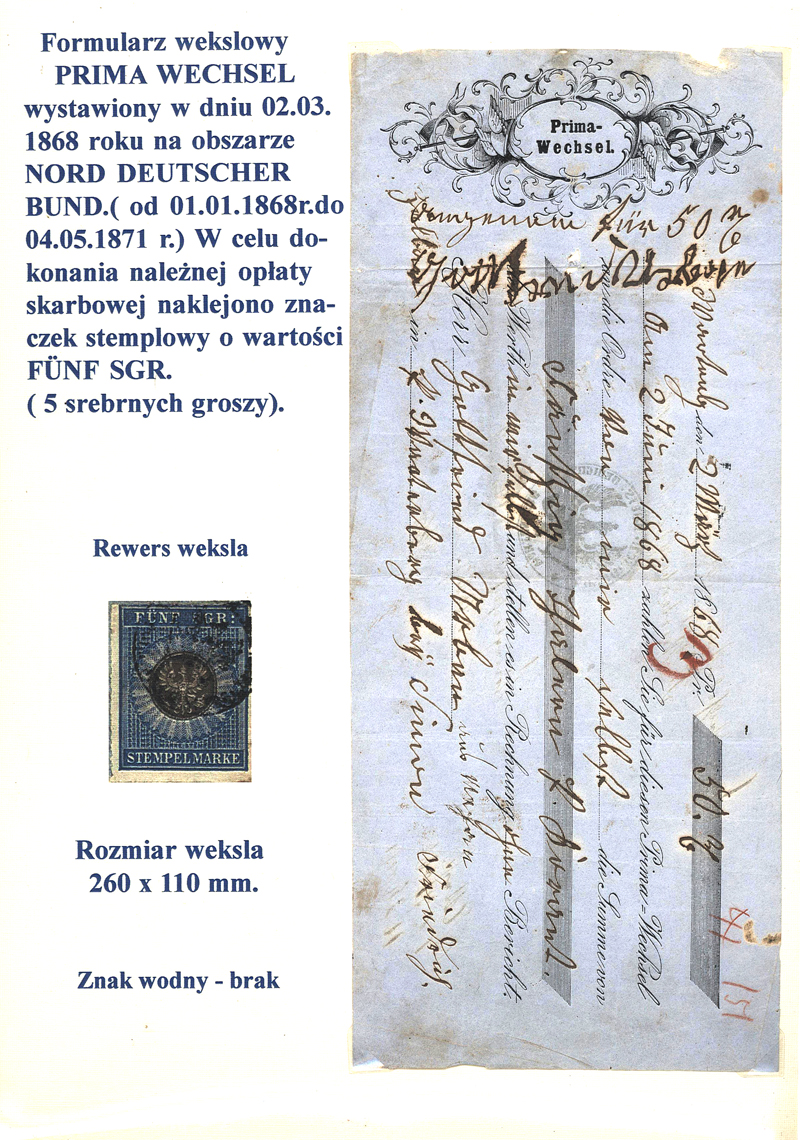 Formularz wekslowy
PRIMA WECHSEL
wystawiony w dniu 02.03.
1868 roku na obszarze
NORD DEUTSCHER
BUND.( od 01.01.1868r.do
04.05.1871 r.) W celu do-
konania należnej opłaty
skarbowej naklejono zna-
czek stemplowy o wartości
FÜNF SGR.
( 5 srebrnych groszy).
Rewers weksla
FÜNF SGR:
STEMPELMARKE
Rozmiar weksla
260 x 110 mm.
Znak wodny - brak
Prima-
Wechsel.
für 50
den 2 März 1868 Pr. 50.
Am 2 Juni 1868 zahlen Sie für diesen Prima-Wechsel
an die Ordre von mir selbst die Summe von
Fünfzig Thalern
Werth in mir selbst und stellen es in Rechnung Bericht.
Herr Gottfried
in bei Simon
47 151